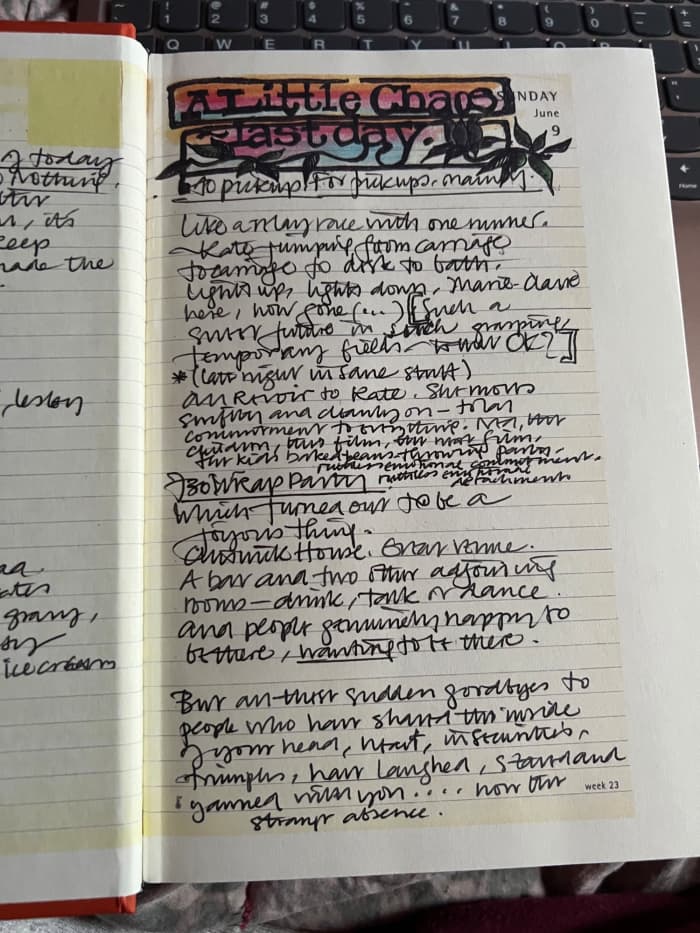 A Little Chaos
~last day.
SUNDAY
June
9
to pickups! For pickups. mainly.
Like a relay race with one runner.
Kate jumping from carriage
to carriage to desk to bath.
Lights up, lights down, Marie-Claire
here, now gone (...) [Such a
future in such grasping
temporary fields OK?]
*(late night insane stuff)
Au Revoir to Kate. She moves
swiftly and cleanly on – total
commitment to everything. Ned, her
children, this film, her next film,
the kids baked beans throwing party.
ruthless emotional commitment.
ruthless emotional
detachment
7.30 Wrap Party
which turned out to be a
joyous thing.
Chiswick House. Great venue.
A bar and two other adjoining
rooms – drink, talk or dance.
And people genuinely happy to
be there, wanting to be there.
But all these sudden goodbyes to
people who have shared the inside
of your head, heart, insecurities,
triumphs, have laughed, stared and
yawned with you.... now the
strange absence.
week 23
of today
Nothing.
it's
keep
made the
lesley
grassy,
ice cream
Q W E R T Y U
1 2 3 4 5 6 7 8 9 0
@ # $ % & * ( )
Home